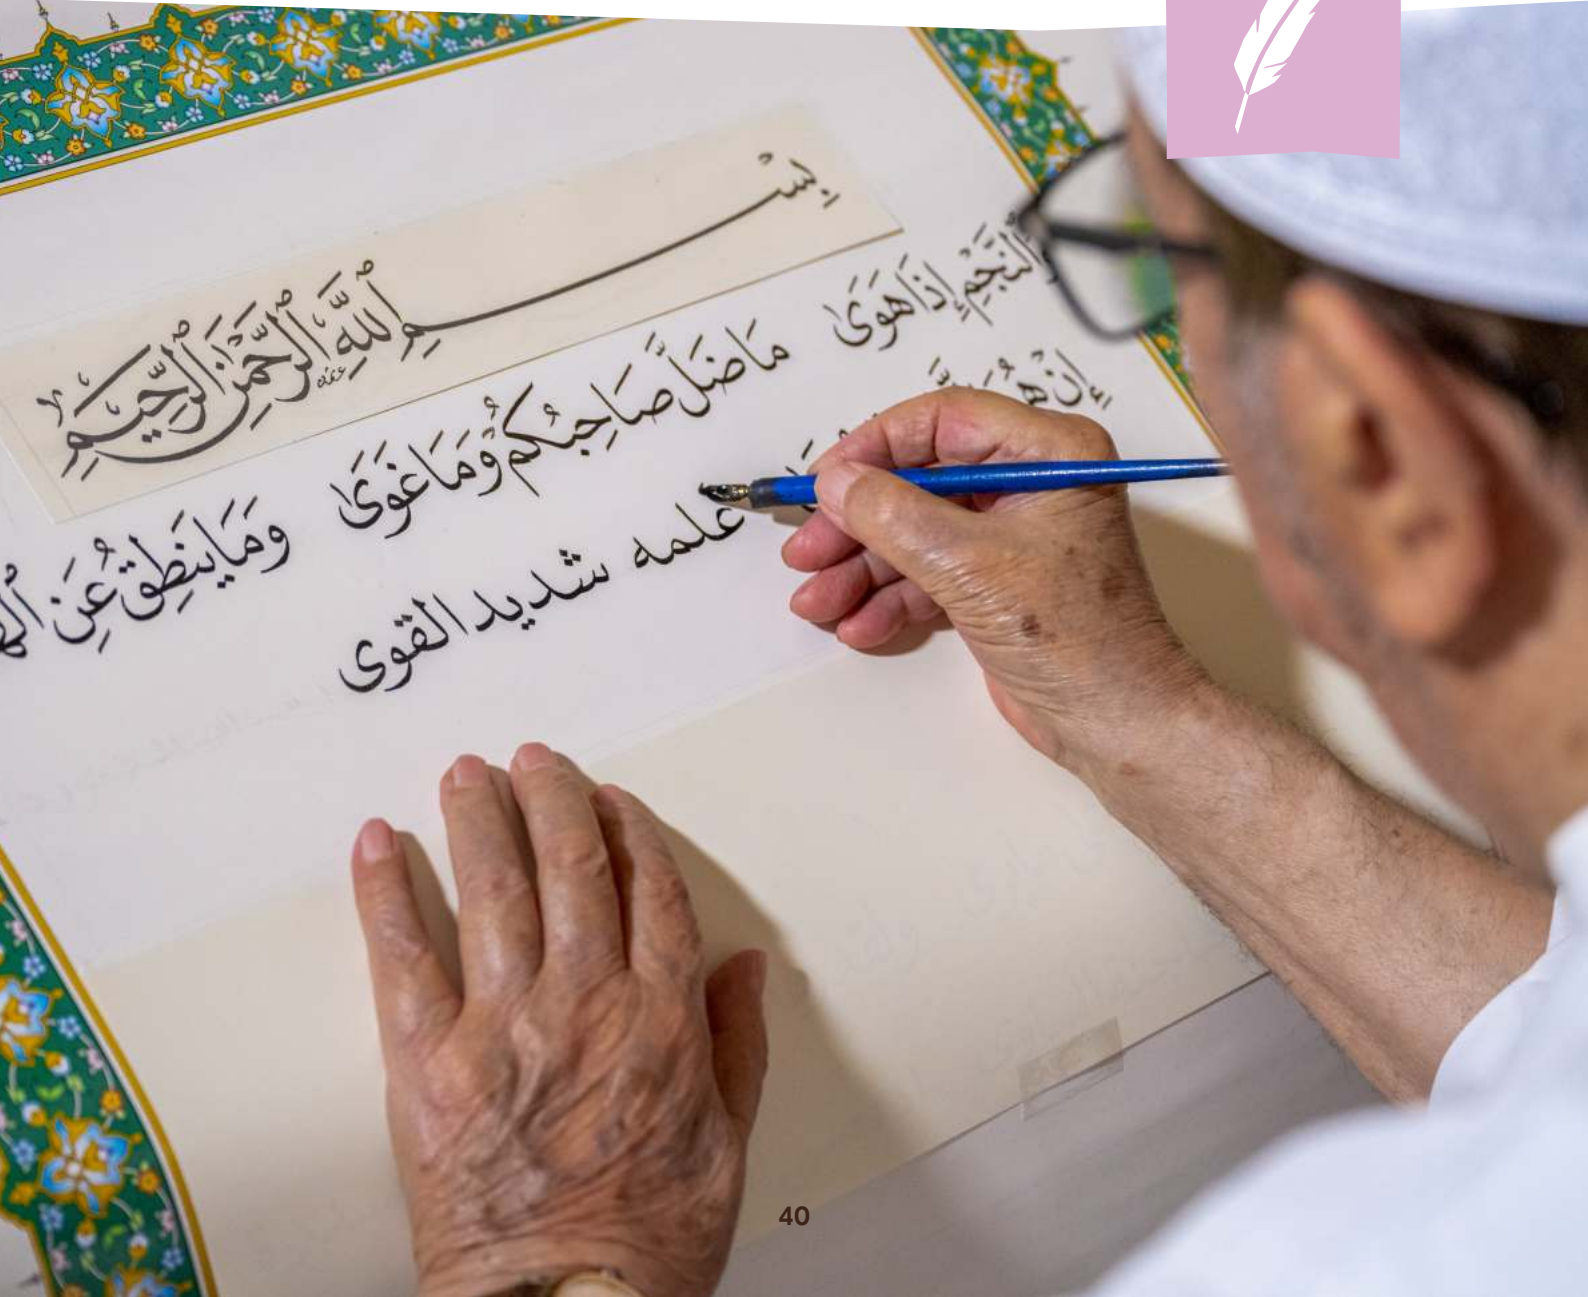 بِسْمِ ٱللَّهِ ٱلرَّحْمَٰنِ ٱلرَّحِيمِ
ٱلنَّجْمِ إِذَا هَوَىٰ مَا ضَلَّ صَاحِبُكُمْ وَمَا غَوَىٰ وَمَا يَنطِقُ عَنِ
إِنْ هُوَ علمه شديد القوى
40